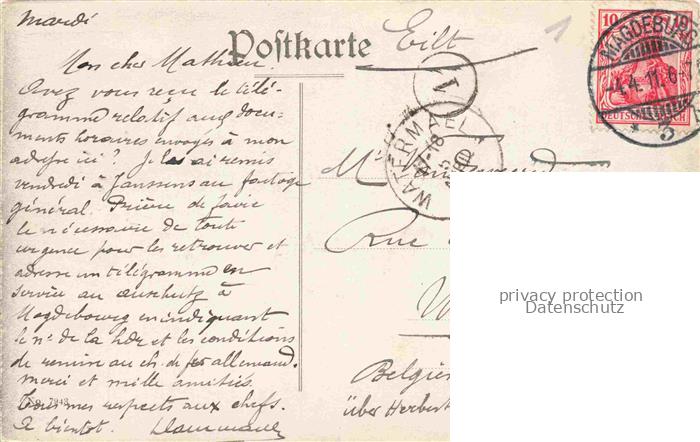 mardi
Postkarte
Eilt
Mon cher Mathieu.
Avez vous reçu le télé-
gramme relatif aux docu-
ments horaires envoyés à mon
adresse ici? Je les ai remis
vendredi à Janssens au factage
général. Prière de faire
le nécessaire de toute
urgence pour les retrouver et
adresser un télégramme en
service au à
Magdebourg en indiquant
le n° de la et les conditions
de remise au ch. de fer allemand.
merci et mille amitiés.
Tous mes respects aux chefs.
A bientôt.
MAGDEBURG
-4.4.11.6-
* 3
10
DEUTSCHES REICH
1
WATERM
M
Rue
W
Belgie
über Herbest
privacy protection
Datenschutz